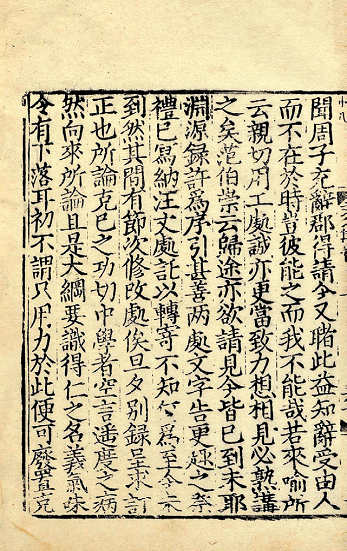 聞周子充辭郡得請今又睹此益知辭受由人
而不在於時豈彼能之而我不能哉若來喻所
云親切用工處誠亦更當致力想相見必熟講
之矣范伯崇云歸途亦欲請見今皆已到未耶
淵源録許為序引甚善两處文字告更趣之祭
禮已寫納汪丈處託以轉寄不知 為至今未
到然其間有節次修改處俟旦夕别録呈求訂
正也所論克己之功切中學者空言遥度之病
然向來所論且是大綱要識得仁之名義氣味
令有下落耳初不謂只用力於此便可廢置克